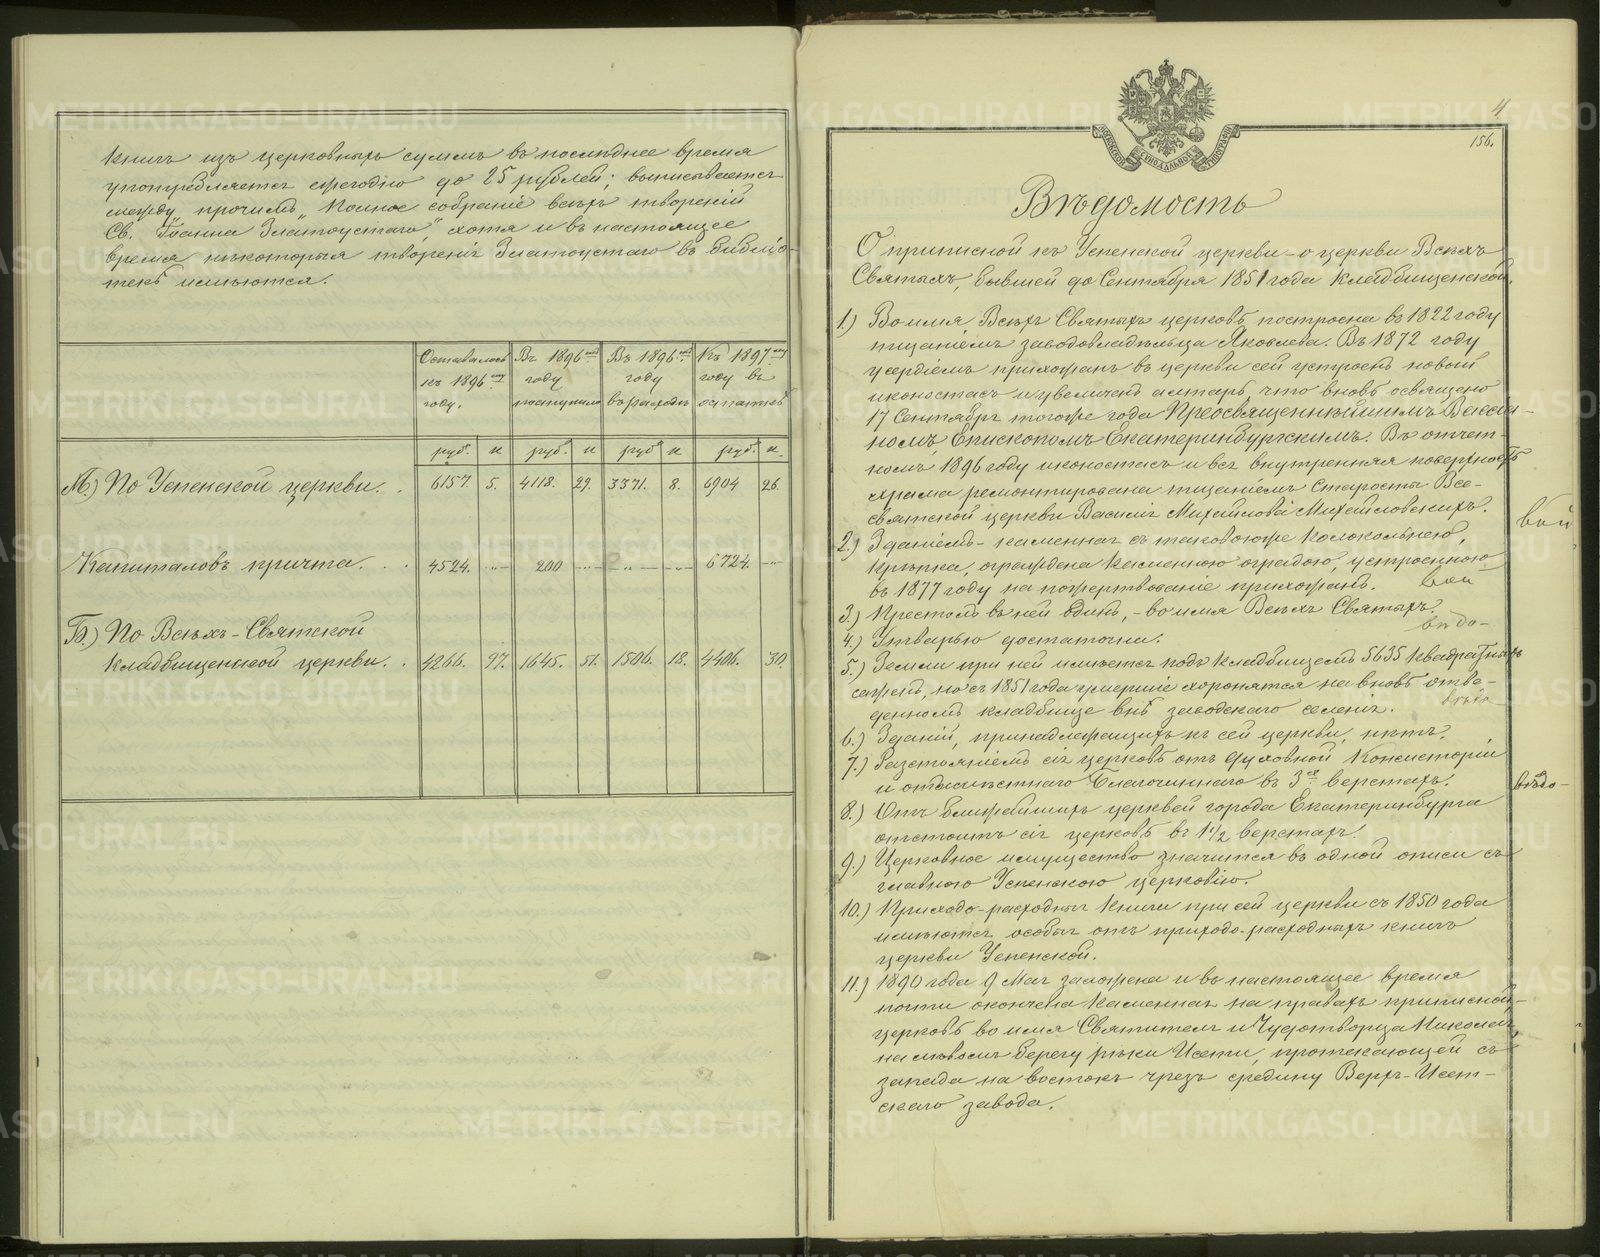 книгъ изъ церковныхъ суммъ въ последнее время
употребляется ежегодно до 25 рублей; выписывается
между прочимъ „Полное собраніе всѣхъ твореній
Св. Іоанна Златоустаго“, хотя и въ настоящее
время нѣкоторыя творенія Златоустаго въ библіо-
текѣ имѣются.
Оставалось къ 1896 му году.
Въ 1896 мъ году поступило
Въ 1896 мъ году въ расходѣ
Къ 1897 му году въ остаткѣ
руб. к руб. к руб к руб. к.
А.) По Успенской церкви. . 6157. 5. 4118. 29. 3371. 8. 6904 26.
Капиталовъ причта. . . 4524. „ — 200 — „ — „ — 6724. —
Б.) По Всѣхъ-Святской
кладбищенской церкви. . 4266. 97. 1645. 51. 1506. 18. 4406. 30.
4
156.
СИНОДАЛЬНОЙ ТИПОГРАФІИ
Вѣдомость
О приписной къ Успенской церкви – о церкви Всѣхъ
Святыхъ, бывшей до Сентября 1851 года Кладбищенской.
1.) Во имя Всѣхъ Святыхъ церковь построена въ 1822 году
тщаніемъ заводовладѣльца Яковлева. Въ 1872 году
усердіемъ прихожанъ въ церкви сей устроенъ новый
иконостасъ и увеличенъ алтарь, что вновь освящено
17 Сентября тогоже года Преосвященнѣйшимъ Вассіа-
номъ, Епископомъ Екатеринбургскимъ. Въ отчет-
номъ 1896 году иконостасъ и вся внутренняя поверхность
храма ремонтирована тщаніемъ старосты Все-
святской церкви Василія Михайлова Михайловскихъ.
2.) Зданіемъ – каменная съ таковоюже колокольнею,
крѣпка, ограждена каменною оградою, устроенною
въ 1877 году на пожертвованіе прихожанъ.
3.) Престолъ въ ней одинъ, – во имя Всѣхъ Святыхъ.
4.) Утварью достаточна.
5.) Земли при ней имѣется подъ кладбищемъ 5635 квадратныхъ
сажень, но съ 1851 года умершіе хоронятся на вновь отве-
денномъ кладбище внѣ заводскаго селенія.
6.) Зданій, принадлежащихъ къ сей церкви, нѣтъ.
7.) Разстояніемъ сія церковь отъ духовной Консисторіи
и отъ мѣстнаго Благочиннаго въ 3хъ верстахъ.
8.) Отъ ближайшихъ церквей города Екатеринбурга
отстоитъ сія церковь въ 1 1/2 верстахъ.
9.) Церковное имущество значится въ одной описи съ
главною Успенскою церковію.
10.) Приходо-расходныя книги при сей церкви съ 1850 года
имѣются особыя отъ приходо-расходныхъ книгъ
церкви Успенской.
11.) 1890 года 9 Мая заложена и въ настоящее время
почти окончена каменная на правахъ приписной
церковь во имя Святителя и Чудотворца Николая,
на лѣвомъ берегу рѣки Исети, протекающей съ
запада на востокъ чрезъ средину Верхъ-Исет-
скаго завода.
METRIKI.GASO-URAL.RU